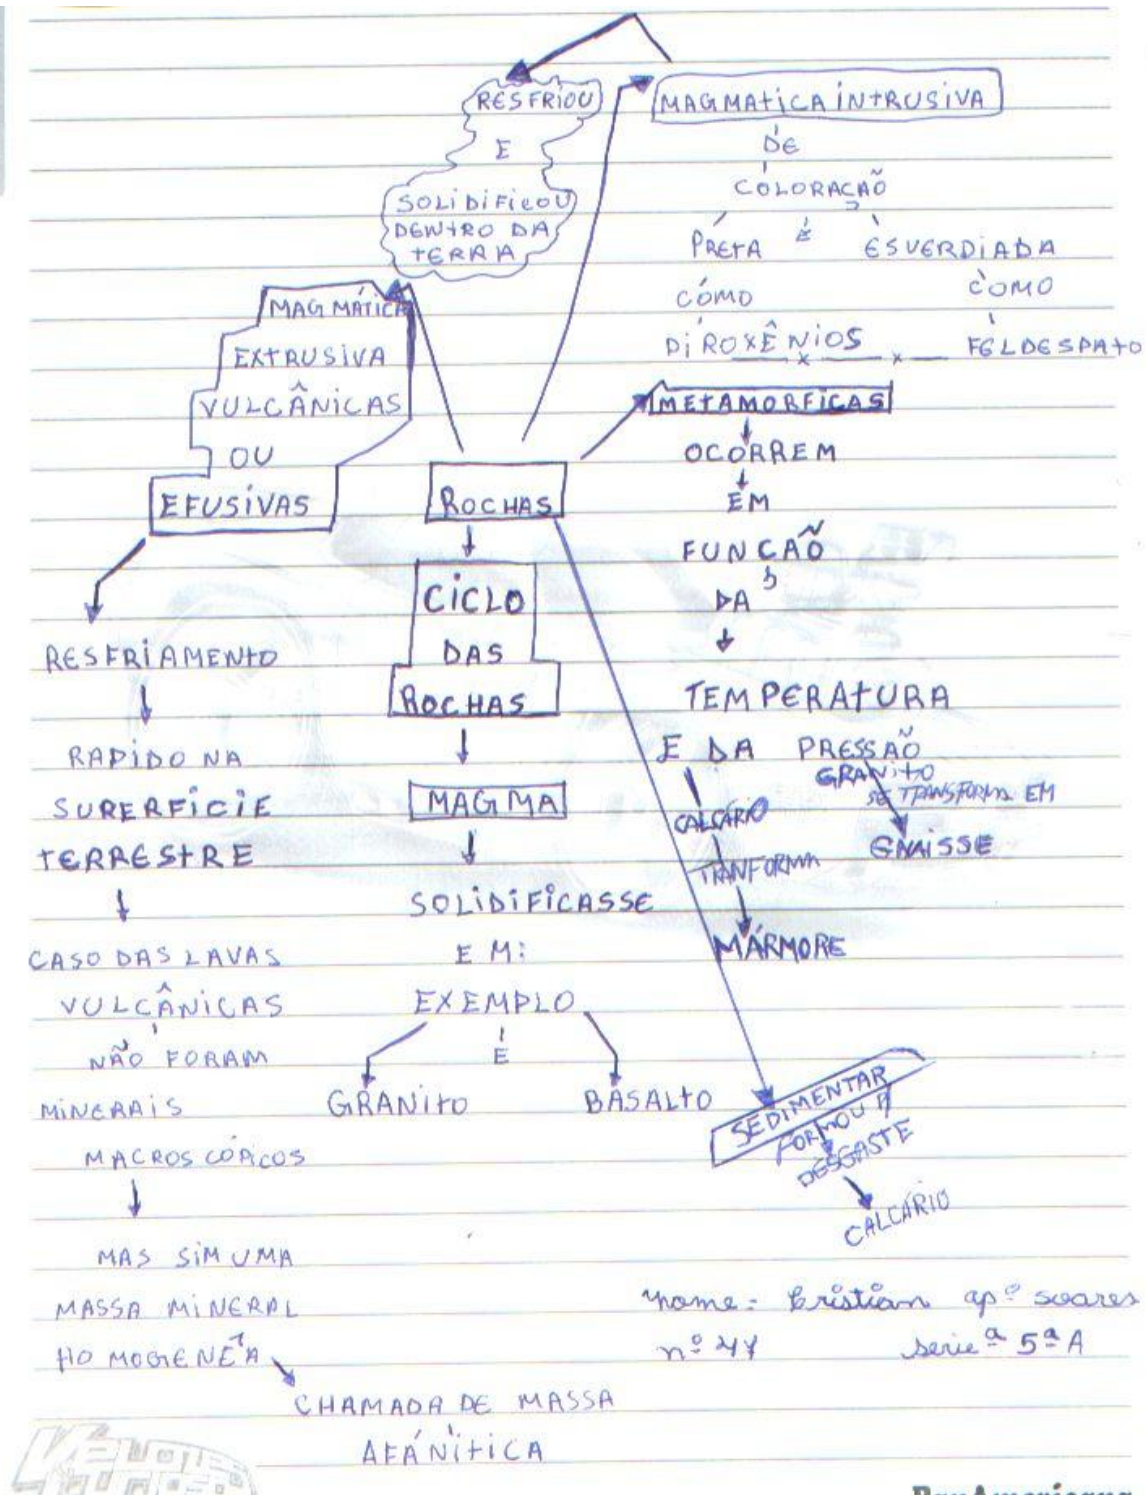 RESFRIOU
E
SOLIDIFICOU
DENTRO DA
TERRA
MAGMATICA INTRUSIVA
DE
COLORAÇÃO
PRETA E ESVERDIADA
COMO COMO
DIROXÊNIOS FELDESPATO
MAGMÁTICA
EXTRUSIVA
VULCÂNICAS
OU
EFUSIVAS
RESFRIAMENTO
RAPIDO NA
SURERFICIE
TERRESTRE
CASO DAS LAVAS
VULCÂNICAS
NÃO FORAM
MINERAIS
MACROSCÓPICOS
MAS SIM UMA
MASSA MINERAL
HOMOGENÊA
CHAMADA DE MASSA
AFANÍTICA
ROCHAS
CICLO
DAS
ROCHAS
MAGMA
SOLIDIFICASSE
EM:
EXEMPLO
E
GRANITO BASALTO
METAMORFICAS
OCORREM
EM
FUNÇÃO
DA
TEMPERATURA
E DA PRESSÃO
GRANITO
SE TRANSFORMA EM
GNAISSE
CALCÁRIO
TRANFORMA
MÁRMORE
SEDIMENTAR
FORMOU P/
DESGASTE
CALCÁRIO
nome: Cristian apº soares
nº 44 serieª 5ª A
VELOZES